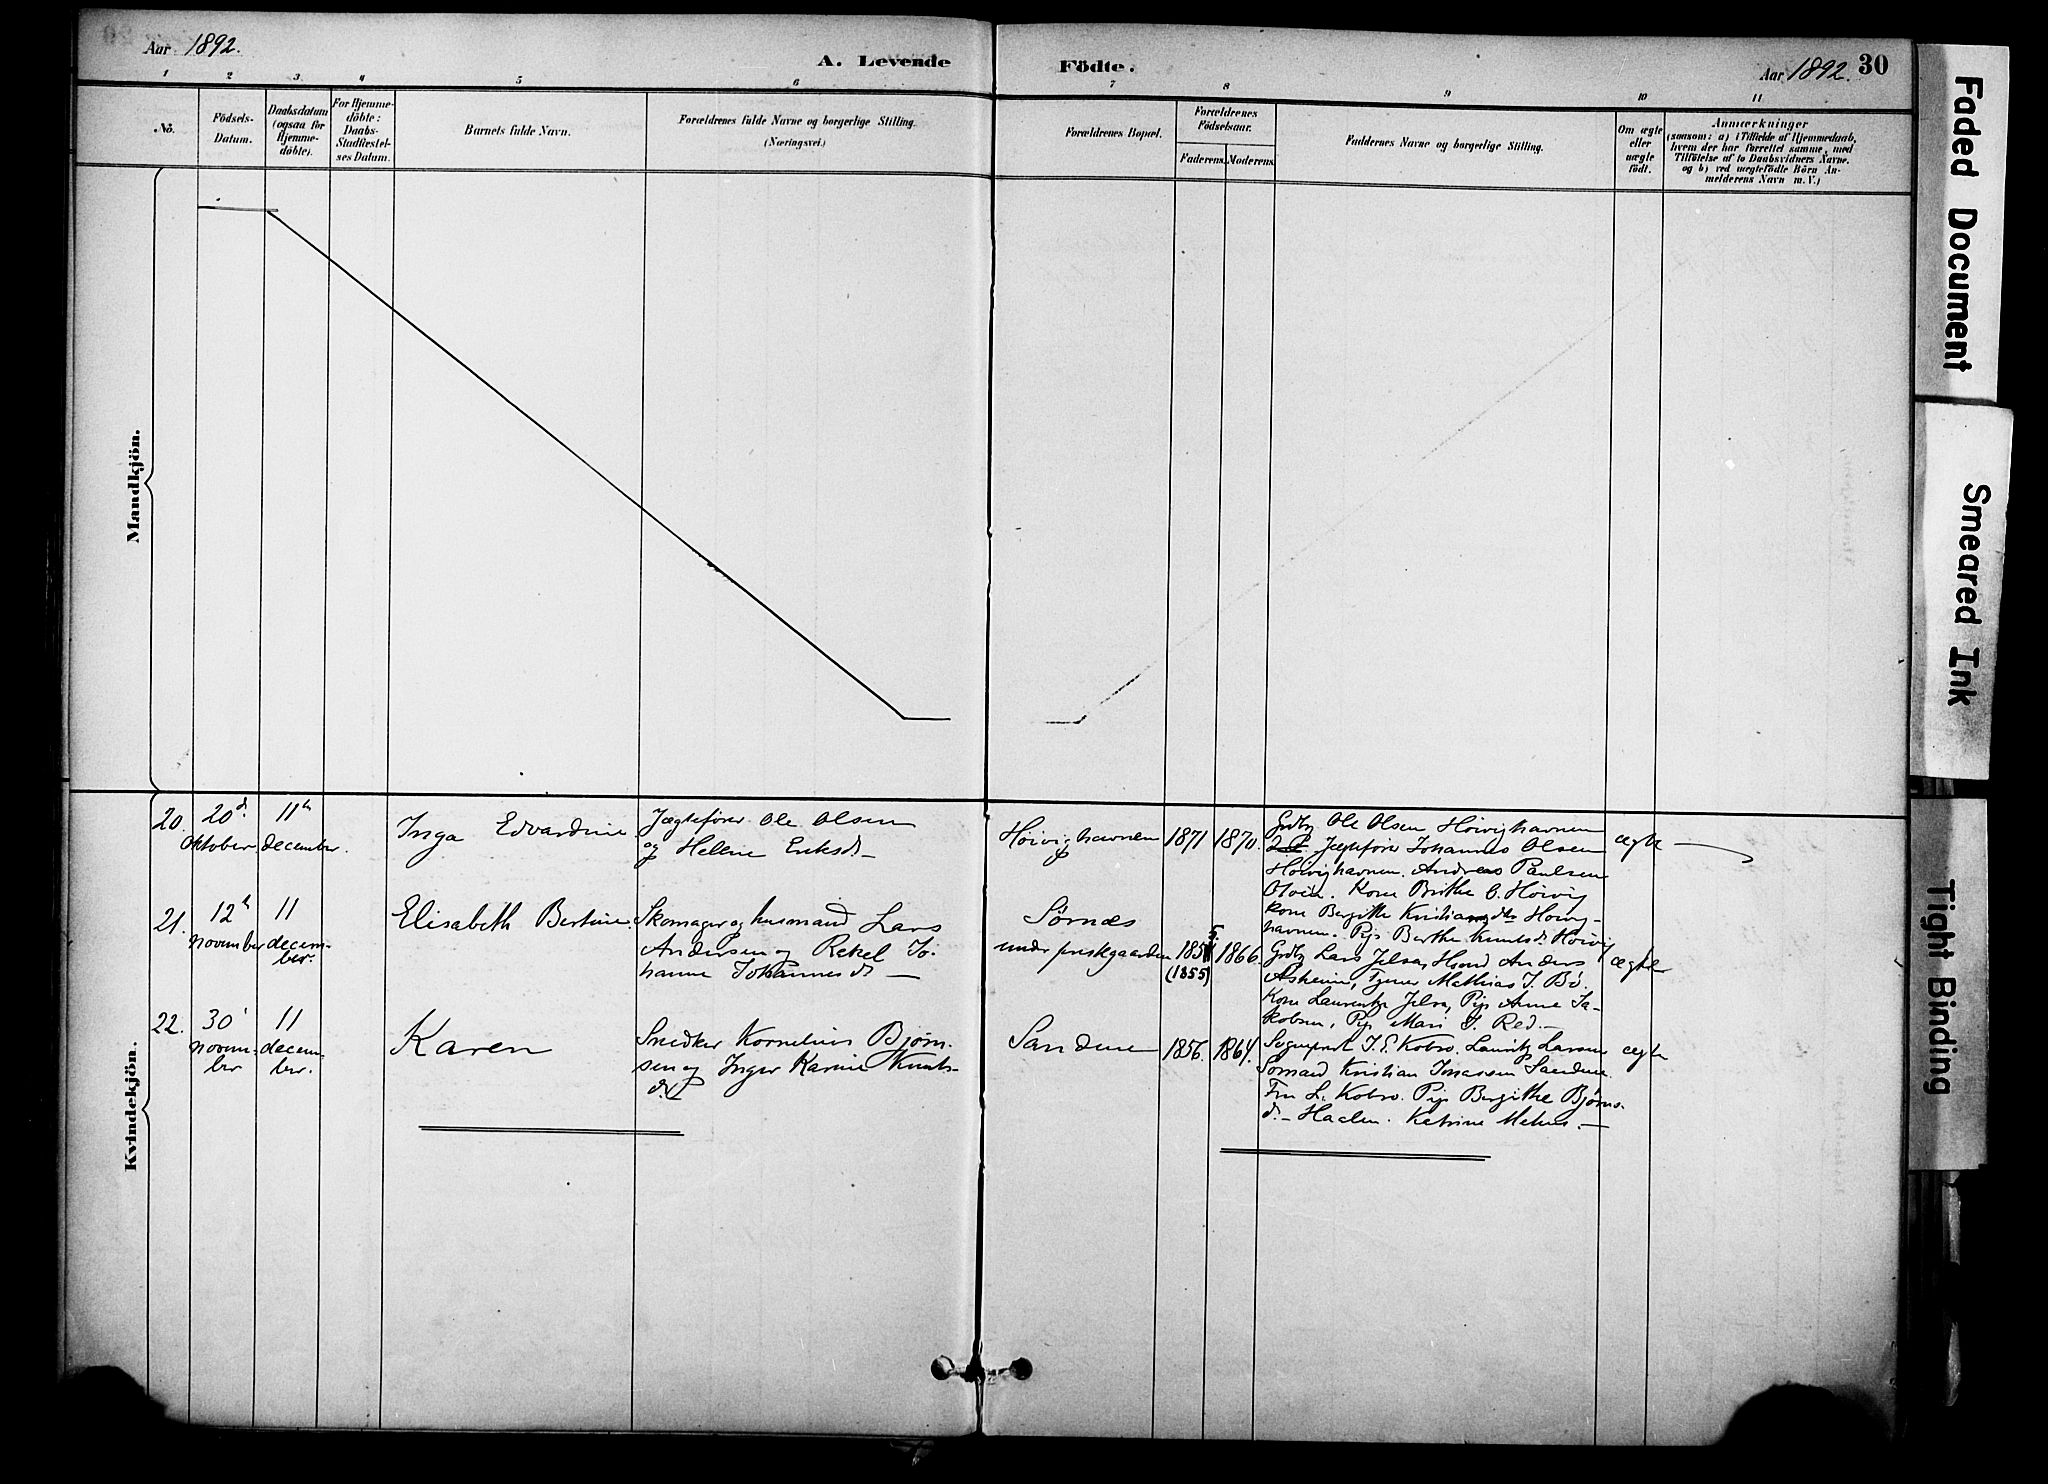 Aar 1892.
A. Levende
Födte.
Aar 1892. 30
1 2 3 4 5 6 7 8 9 10 11
No.
Födsels-
Datum.
Daabsdatum
(ogsaa for
Hjemme-
döbte).
For Hjemme-
döbte:
Daabs-
Stadfæstel-
ses Datum.
Barnets fulde Navn.
Forældrenes fulde Navne og borgerlige Stilling.
(Næringsvei.)
Forældrenes Bopæl.
Forældrenes
Födselsaar.
Faderens. Moderens.
Faddernes Navne og borgerlige Stilling.
Om ægte
eller
uægte
födt.
Anmærkninger
(saasom: a) i Tilfælde af Hjemmedaab,
hvem der har forrettet samme, med
Tilföielse af to Daabsvidners Navne.
og b) ved uægtefödte Börn An-
melderens Navn m. V.)
Mandkjön.
Kvindekjön.
20.
20d.
Oktober.
11te
december.
Inga Edvardine
Jægtefører Ole Olsen
og Helene Eriksd.
Høivighavnen
1871
1870.
Grdbr Ole Olsen Høivighavnen
Jægtefører Johannes Olsen
Høivighavnen. Andreas Paulsen
Kone Brithe O. Høivig
kone Bergitte Høivig-
havnen. Pige Berthe Knutsd. Høivig
ægte
21.
12te
november
11
decem-
ber.
Elisabeth Bertine
Skomager og husmand Lars
Andersen og Rakel Jo-
hanne Johannesd.
Sørnæs
under prestgaarden
5.
185
(1855)
1866.
Grdbr Lars Jelsa, Anders
Askeim, Tjener Mathias J. Bø.
Kone Laurentze Jelsa, Pige Anne Ja-
kobsen, Pige Mari J. Red.
ægte
22.
30
novem-
ber
11
decem-
ber.
Karen
Snedker Kornelius Bjørn-
sen og Inger Karine Knuts-
d.
Sandene
1856.
1864.
Sogneprest J. E. Kobro. Lauritz Larsen
Sømand Kristian Jonassen Sandene
Fru L. Kobro. Pige Bergithe Bjørns-
d. Haalen. Katrine
ægte
Faded Document
Smeared Ink
Tight Binding